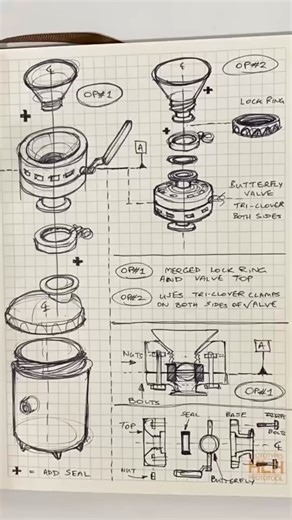 OP#1
OP#2
LOCK RING
A
BUTTERFLY
VALVE
TRI-CLOVER
BOTH SIDES
OP#1 MERGED LOCK RING
AND VALVE TOP
OP#2 USES TRI-CLOVER CLAMPS
ON BOTH SIDES OF VALVE
NUTS
A
BOLTS
OP#1
TOP
SEAL
BASE
BOLTS
NUT
BUTTERFLY
+ = ADD SEAL